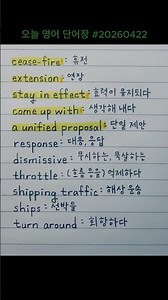 오늘 영어 단어장 #20260422
cease-fire : 휴전
extension : 연장
stay in effect : 효력이 유지되다
come up with : 생각해 내다
a unified proposal : 단일 제안
response : 대응, 응답
dismissive : 무시하는, 묵살하는
throttle : (흐름 등을) 억제하다
shipping traffic : 해상 운송
ships : 선박들
turn around : 회항하다